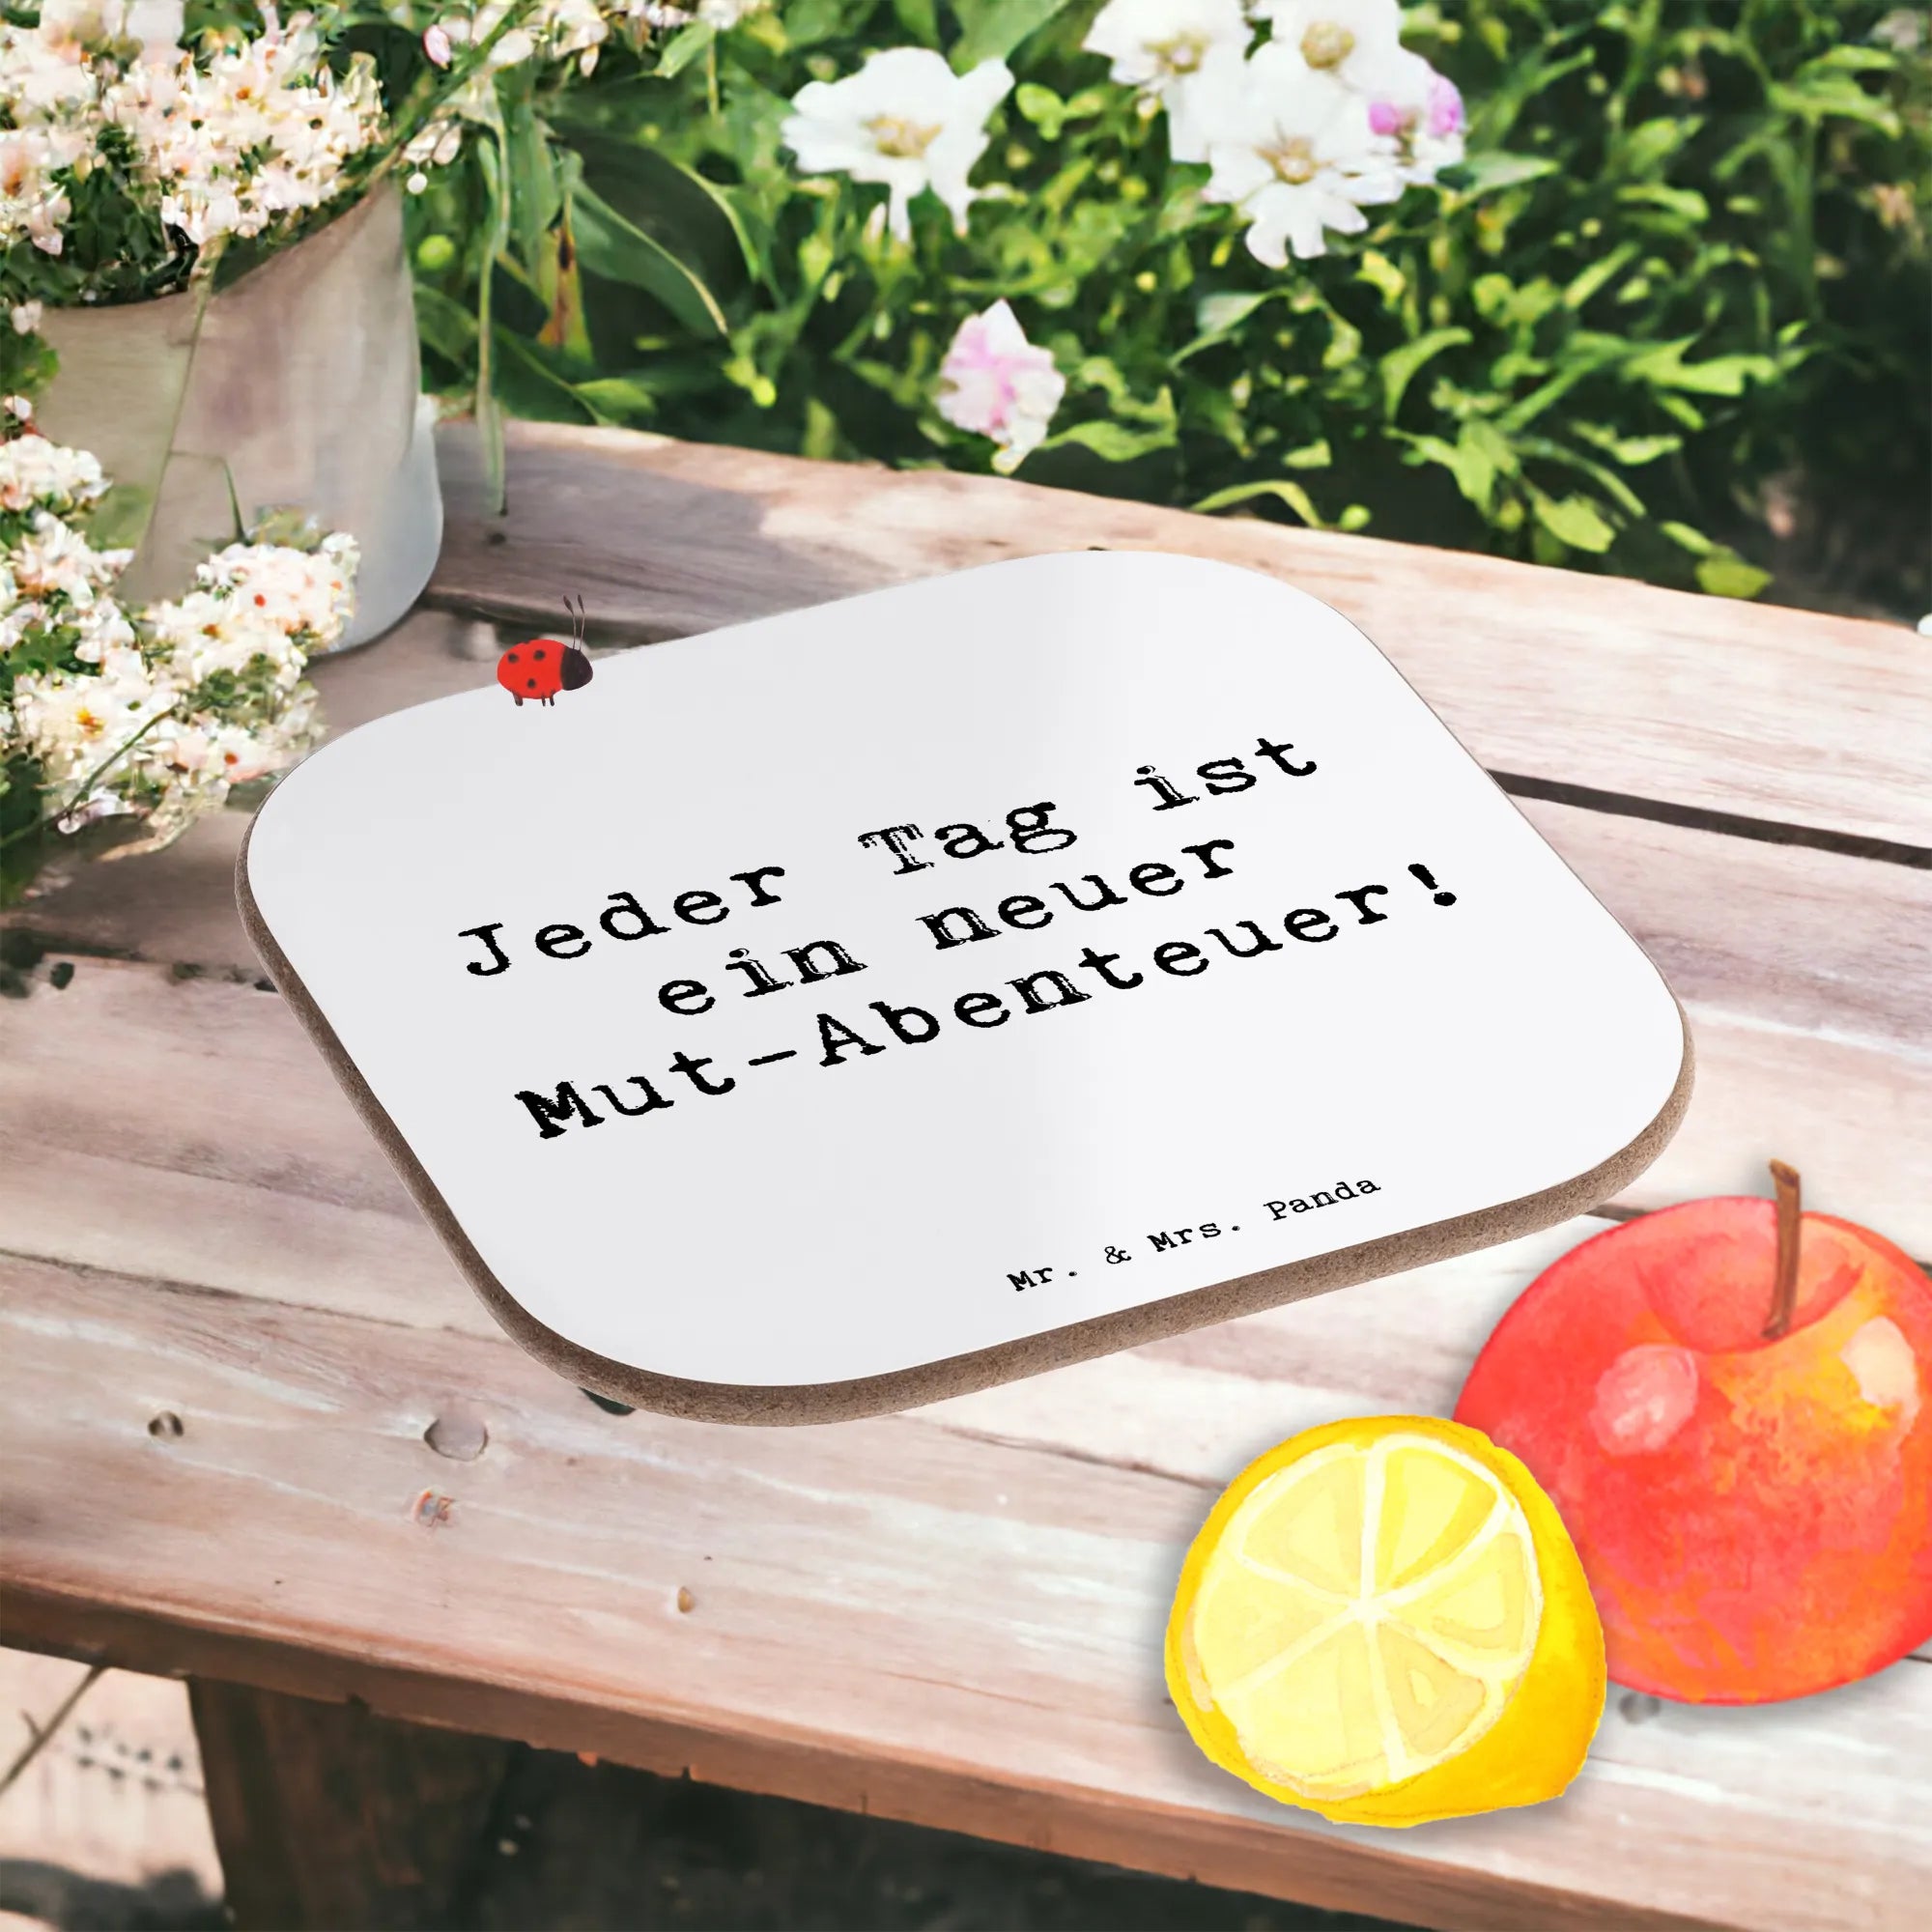 Jeder Tag ist
ein neuer
Mut-Abenteuer!
Mr. & Mrs. Panda